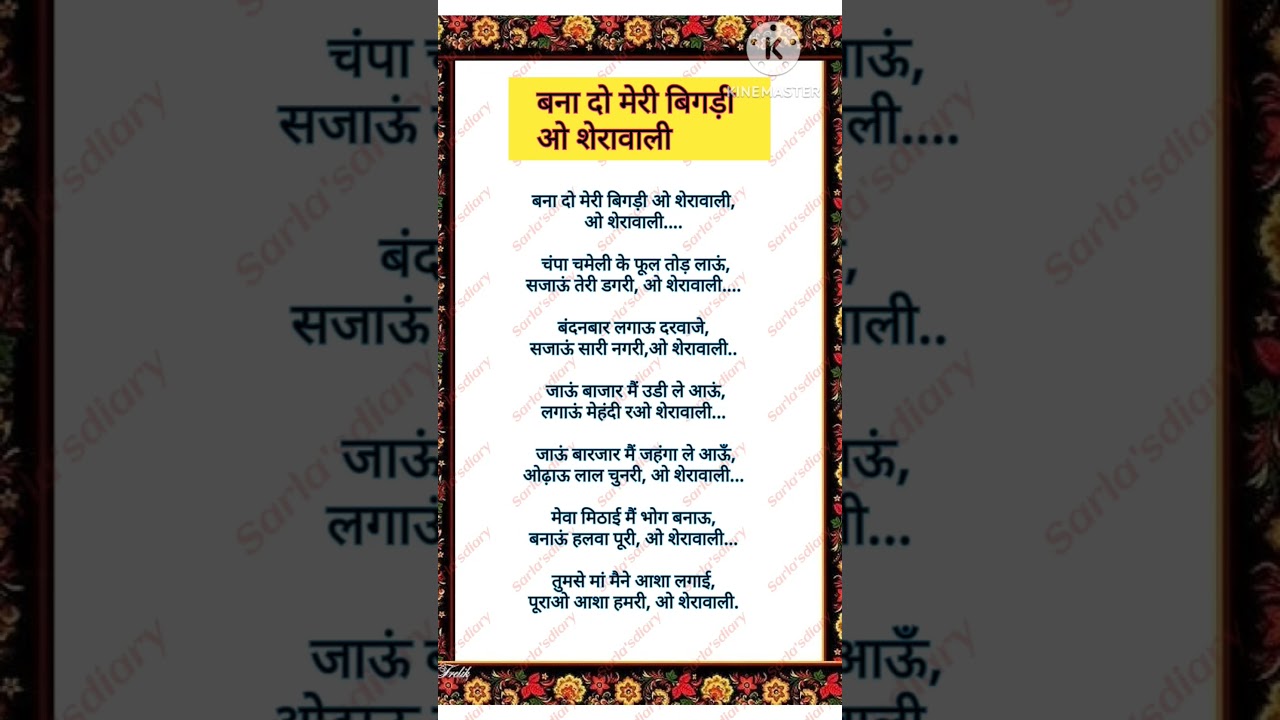 बना दो मेरी बिगड़ी
ओ शेरावाली
KINEMASTER
बना दो मेरी बिगड़ी ओ शेरावाली,
ओ शेरावाली....
चंपा चमेली के फूल तोड़ लाऊं,
सजाऊं तेरी डगरी, ओ शेरावाली....
बंदनबार लगाऊ दरवाजे,
सजाऊं सारी नगरी,ओ शेरावाली..
जाऊं बाजार मैं उडी ले आऊं,
लगाऊं मेहंदी रओ शेरावाली...
जाऊं बारजार मैं जहंगा ले आऊँ,
ओढ़ाऊ लाल चुनरी, ओ शेरावाली...
मेवा मिठाई मैं भोग बनाऊ,
बनाऊं हलवा पूरी, ओ शेरावाली...
तुमसे मां मैने आशा लगाई,
पूराओ आशा हमरी, ओ शेरावाली.
Sarla'sdiary